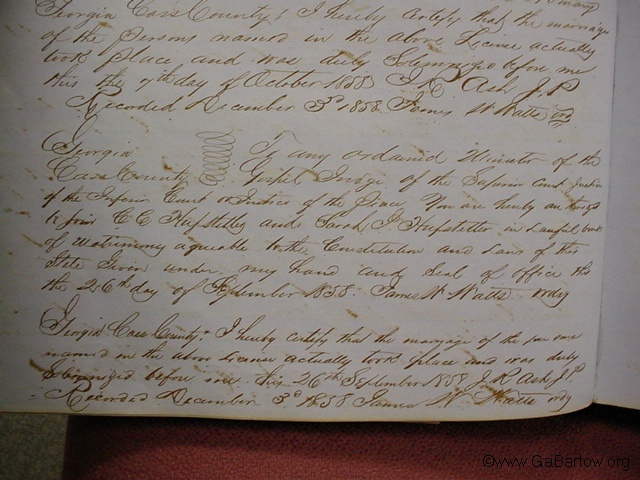 Georgia Cass County I hereby certify that the marriage
of the persons named in the above License actually
took place and was duly Solemnized before me
this the 7th day of October 1858 J R Ash J.P.
Recorded December 3d 1858 James W Watts ordy
Georgia To any ordained Minister of the
Cass County Gospel Judge of the Superior Court Justice
of the Inferior Court or Justice of the Peace You are hereby authorized
to join C C Hufstetler and Sarah J Hufstetler in Lawful bonds
of Matrimony agreeable to the Constitution and Laws of this
State Given under my hand and Seal of office this
the 26th day of September 1858 James W Watts ordy
Georgia Cass County I hereby certify that the marriage of the
named in the above License actually took place and was duly
Solemnized before me this 26th September 1858 J R Ash J.P.
Recorded December 3d 1858 James W Watts ordy
©www.GaBartow.org